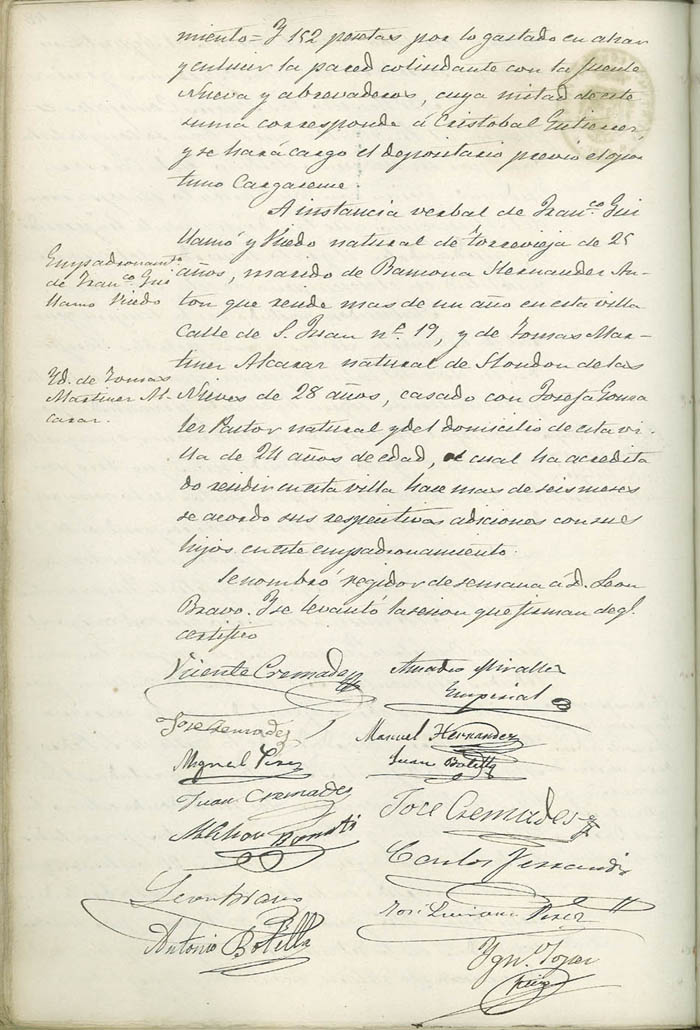 miento = Y 152 pesetas por lo gastado en alzar
y enlucir la pared colindante con la fuente
Nueva y abrevaderos, cuya mitad de este
suma corresponde á Cristobal Gutierrez,
y se hará cargo el depositario previo el opor
tuno Cargareme.
A instancia verbal de Franco. Gui
llamó y Viudo natural de Torrevieja de 25
años, marido de Ramona Hernandez An-
ton que reside mas de un año en esta villa
Calle de S. Juan n.º 19, y de Tomas Mar-
tinez Alcaraz natural de Hondon de las
Nieves de 28 años, casado con Josefa Gonza
lez Pastor natural y del domicilio de esta vi-
lla de 24 años de edad, el cual ha acredita
do residir en esta villa hace mas de seis meses
se acordo sus respectivas adiciones con sus
hijos en este empadronamiento.
Se nombró regidor de semana á D. Leon
Bravo. Y se levantó la sesion que firman de q.
certifico
Empadronamto.
de Franco. Gui
llamo Viudo
Yd. de Tomas
Martinez Al-
caraz.
Vicente Cremades
Amadeo Miralles
Imperial
Jose Cremades
Manuel Hernandez
Miguel Perez
Juan Botella
Juan Cremades
Jose Cremades
Melchor
Carlos Ferrandiz
Leon Bravo
José Perez
Antonio Botella
Ygn.